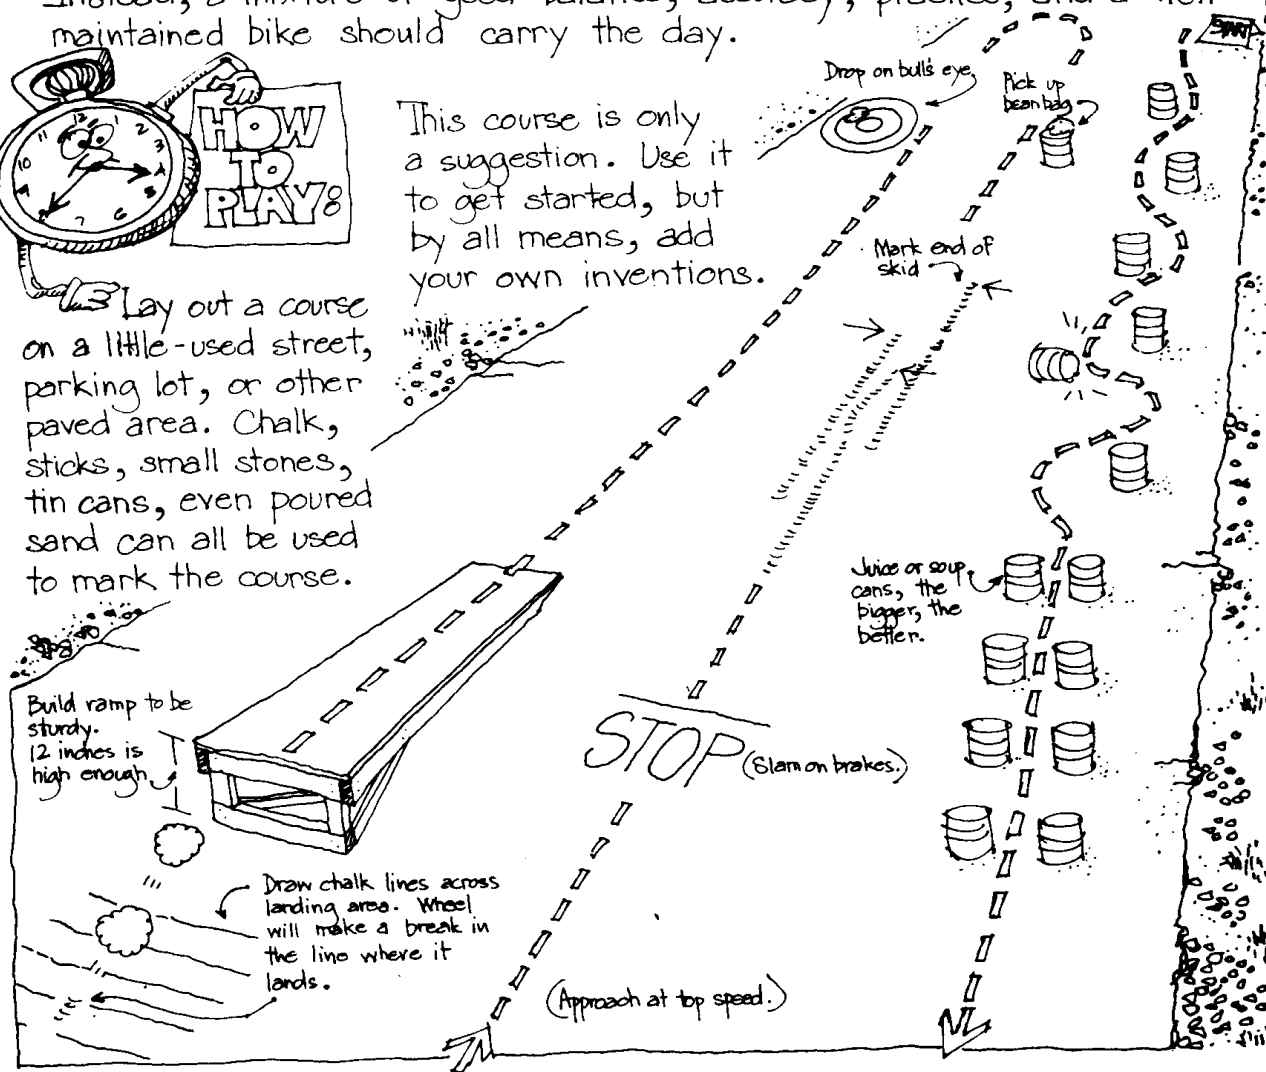 Instead, a mixture of good balance, accuracy, practice, and a well
maintained bike should carry the day.
HOW
TO
PLAY:
This course is only
a suggestion. Use it
to get started, but
by all means, add
your own inventions.
Lay out a course
on a little-used street,
parking lot, or other
paved area. Chalk,
sticks, small stones,
tin cans, even poured
sand can all be used
to mark the course.
Drop on bull's eye
Pick up
bean bag
START
Mark end of
skid
Juice or soup
cans, the
bigger, the
better.
Build ramp to be
sturdy.
12 inches is
high enough
STOP
(Slam on brakes.)
Draw chalk lines across
landing area. Wheel
will make a break in
the line where it
lands.
(Approach at top speed.)
12
1
2
3
4
5
6
7
8
9
10
11